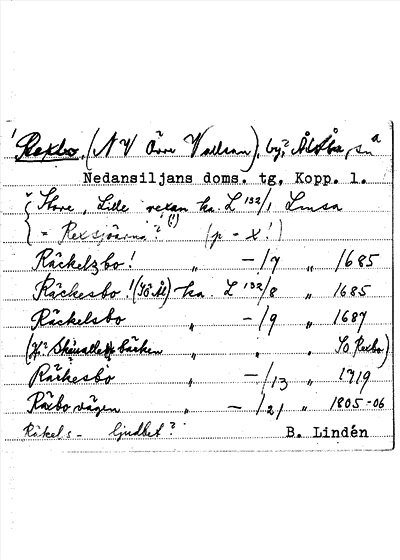 Rexbo, (NV Övre Vallsan), by, Ål sn
Nedansiljans doms. tg, Kopp. l.
Stora, Lilla rexan ka. L 132/1 Lmsa
= Rexsjöarna? (!) (p - x!)
Räckelzbo! " -/7 " 1685
Räckesbo! (Sö Ål) ka. L 132/8 " 1685
Räckelsbo " -/9 " 1687
bäcken " " SO Rexbo)
Räckesbo " -/13 " 1719
Räxbo vägen " -/21 " 1805-06
Räkels- ljudbet? B. Lindén